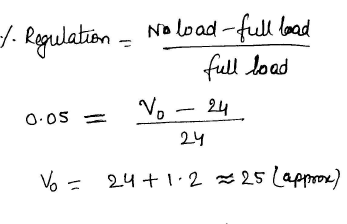 ·/. Regulation = No load - full load / full load
0.05 = V₀ - 24 / 24
V₀ = 24 + 1.2 ≈ 25 (approx)